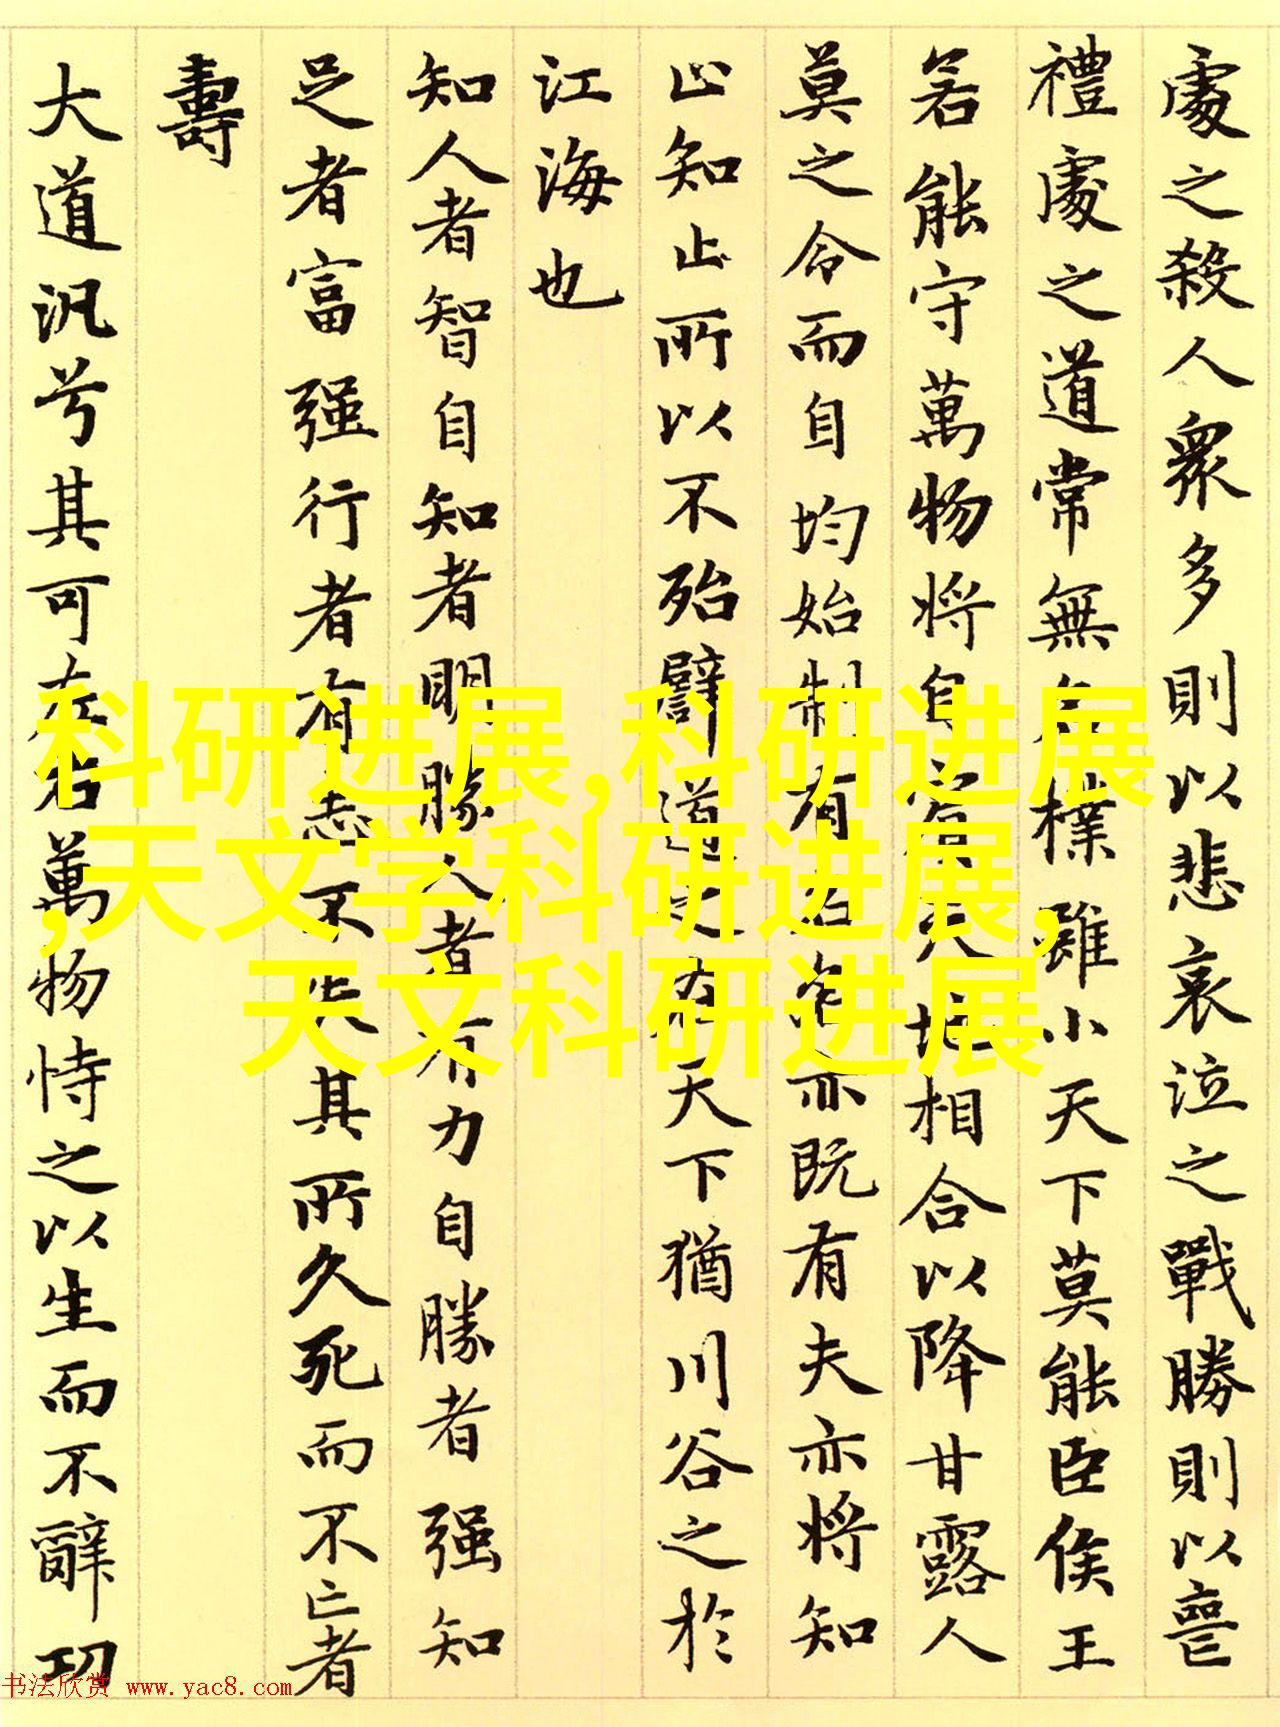 處之殺人衆多則以悲哀泣之戰勝則以喪
禮處之道常無名樸雖小天下莫能臣侯王
若能守萬物將自賓天地相合以降甘露人
莫之令而自均始制有名名亦既有夫亦將知
止知止所以不殆譬道之在天下猶川谷之於
江海也
知人者智自知者明勝人者有力自勝者强知
足者富强行者有志不失其所久死而不亡者
壽
大道汎兮其可左右萬物恃之以生而不辭功
科研进展,科研进展
,天文学科研进展,
天文科研进展
书法欣赏 www.yac8.com